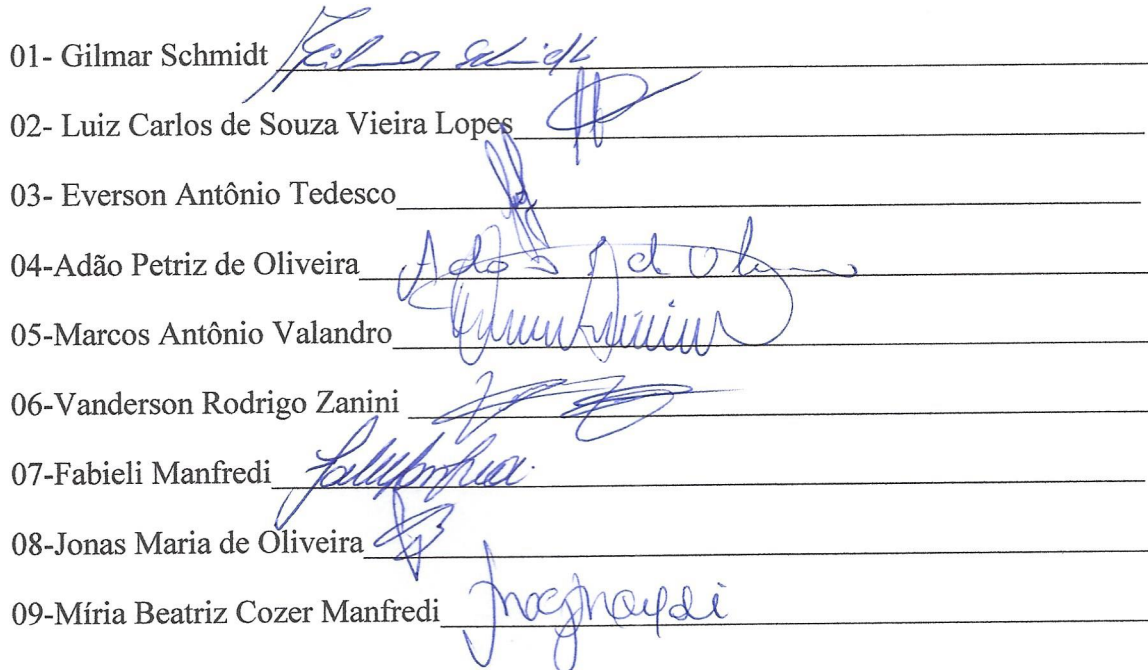 01- Gilmar Schmidt Gilmar Schmidt
02- Luiz Carlos de Souza Vieira Lopes
03- Everson Antônio Tedesco
04-Adão Petriz de Oliveira Adão P de Oliveira
05-Marcos Antônio Valandro
06-Vanderson Rodrigo Zanini
07-Fabieli Manfredi
08-Jonas Maria de Oliveira
09-Míria Beatriz Cozer Manfredi